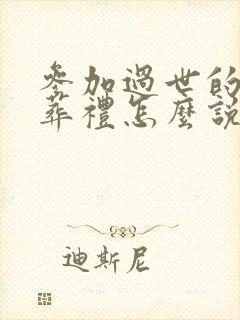 參加過世的
葬禮怎麼說
迪斯尼